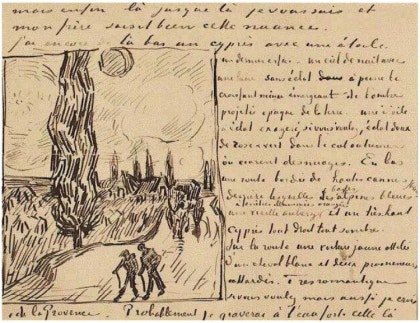 mais enfin là jusque là je vous suis et
mon frère saisit bien cette nuance.
j'ai encore de là bas un cyprès avec une étoile
un dernier essai – un ciel de nuit avec
une lune sans éclat à peine le
croissant mince émergeant de l'ombre
projetée opaque de la terre – une étoile
à éclat exagéré si vous voulez, éclat doux
de rose & vert dans le ciel outremer
où courent des nuages. En bas
une route bordée de hautes cannes
derrière lesquelles les basses alpines bleues
une vieille auberge à fenêtres illuminées orangées et un très haut
cyprès tout droit tout sombre.
Sur la route une voiture jaune attelée
d'un cheval blanc et deux promeneurs
attardés. Très romantique
si vous voulez mais aussi je crois
de la Provence. Probablement je graverai à l'eau forte celle là